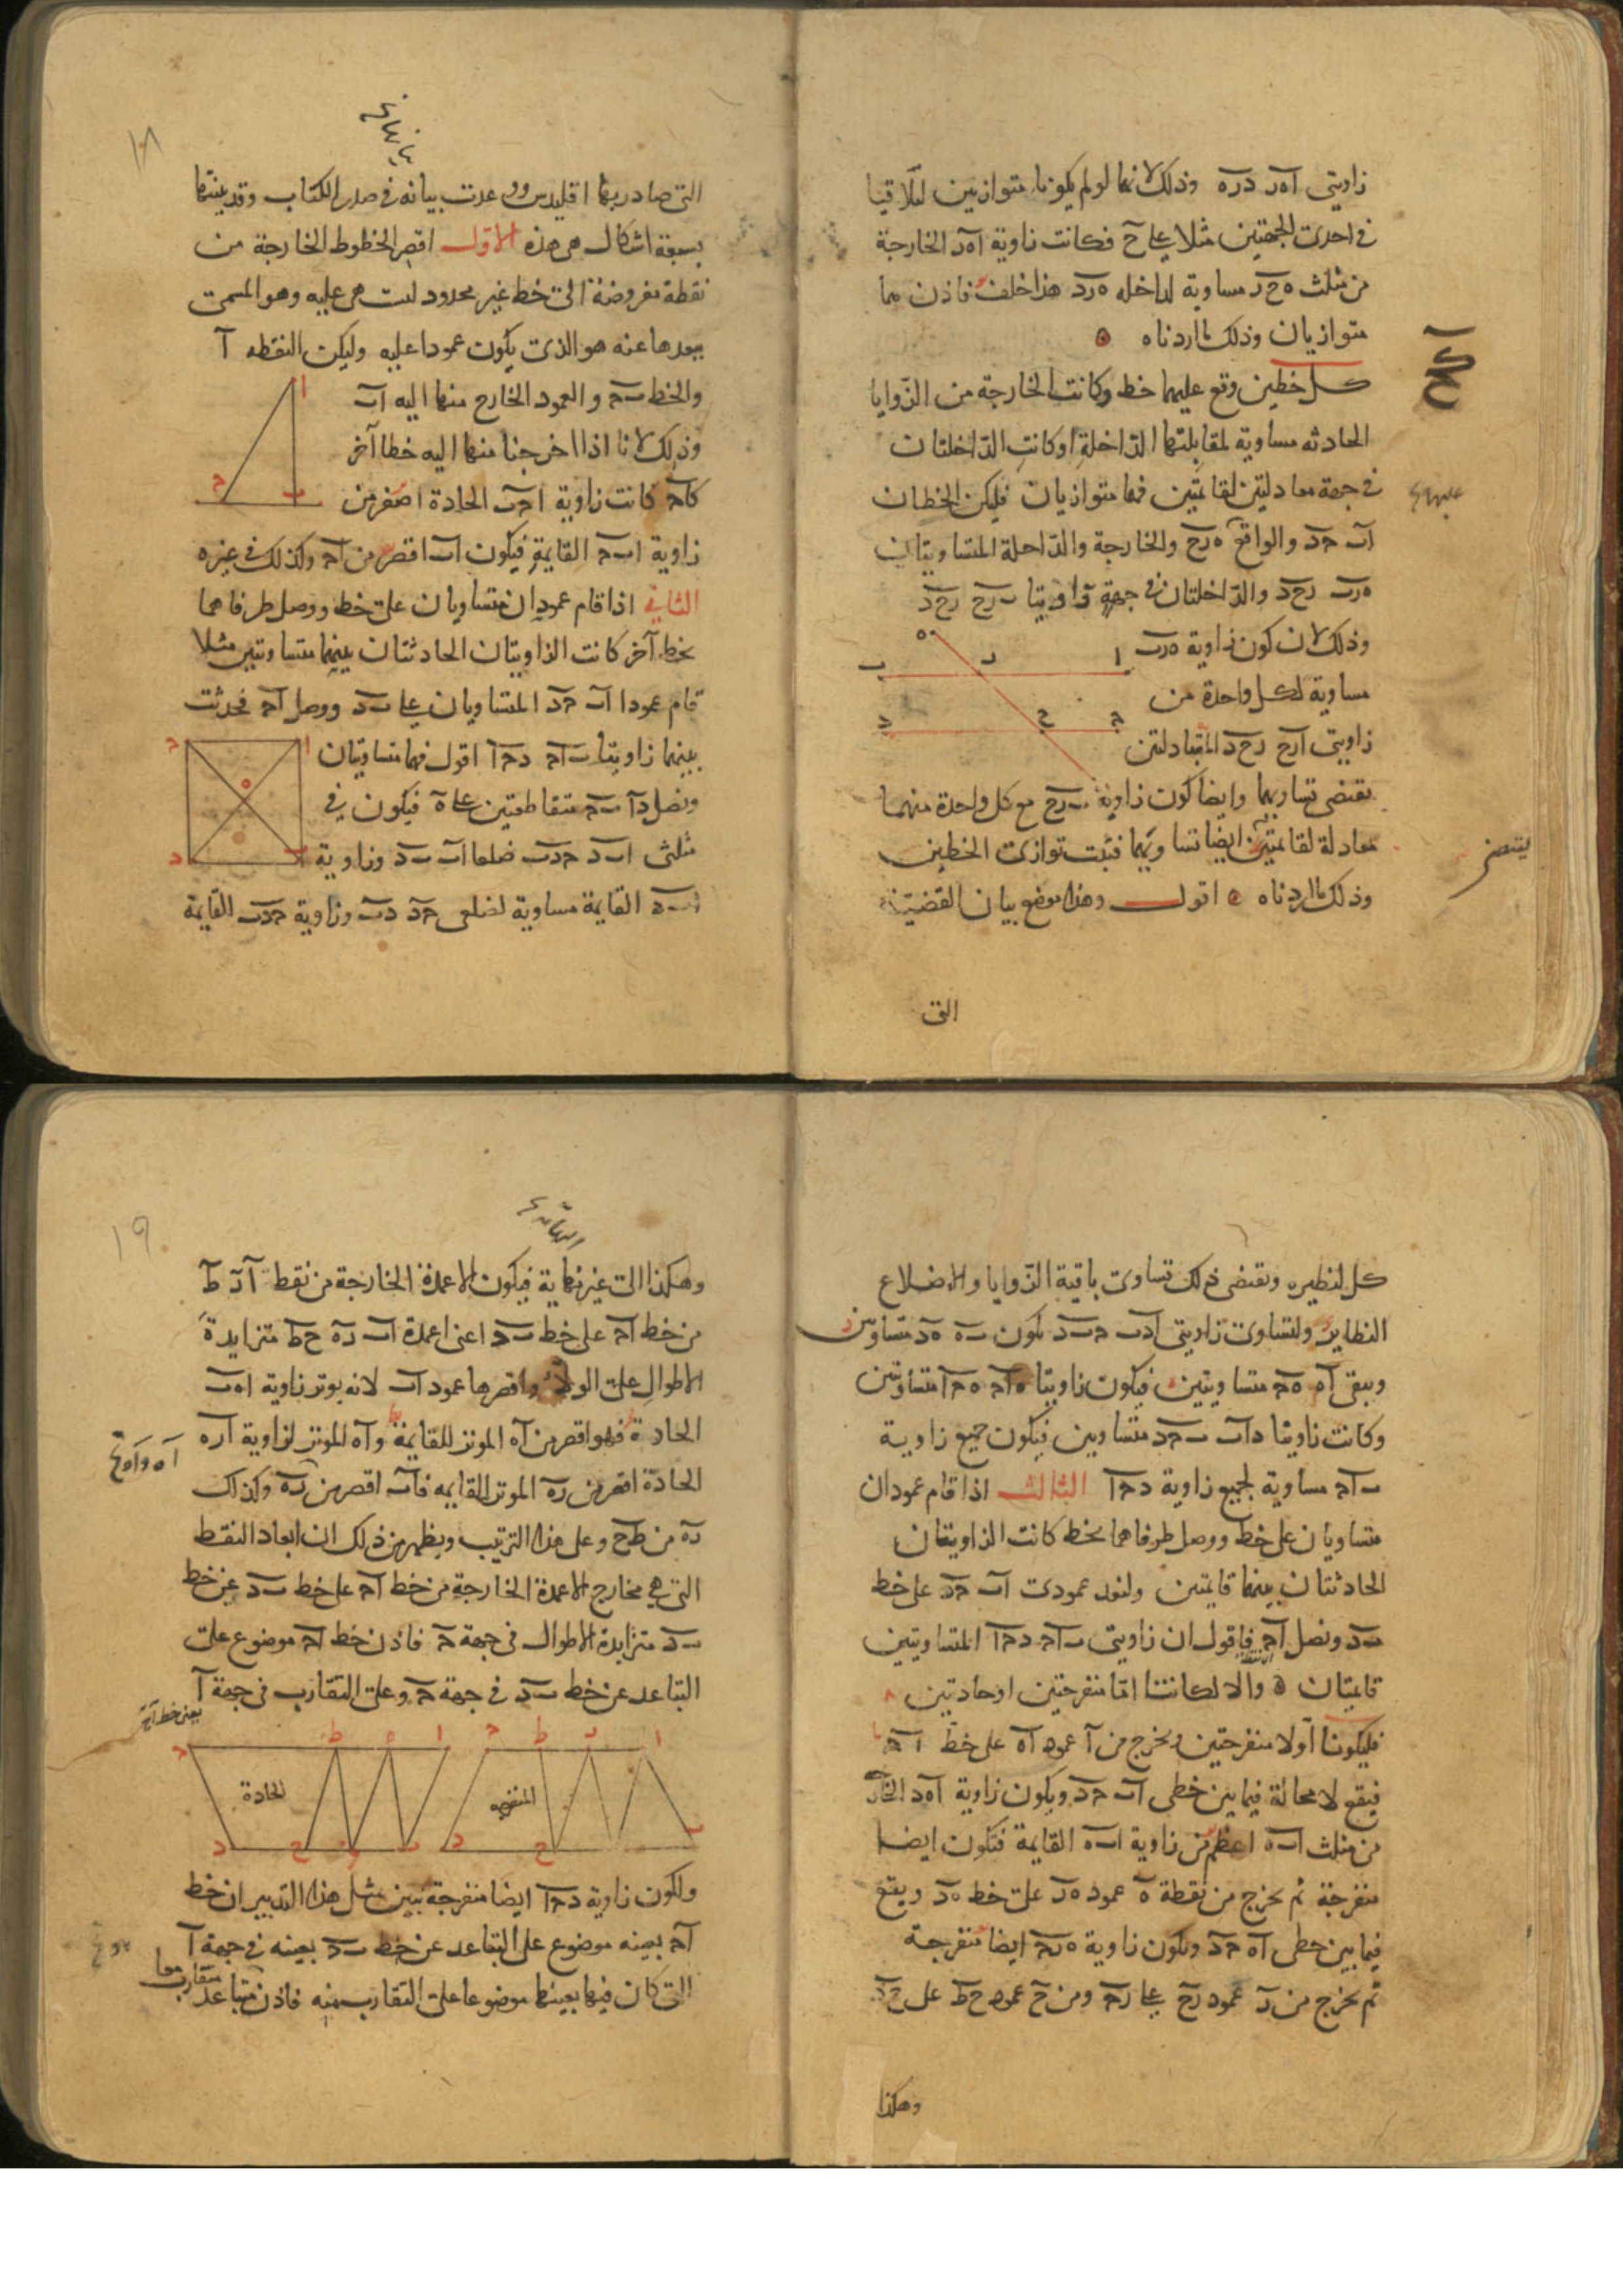 زاويتى اهر دره وذلك لانهما لو لم يكونا متوازيين لتلاقيا
فى احدى الجهتين مثلا على ح فكانت زاوية اهر الخارجة
من مثلث ه ح ر مساوية لداخله هرد هذا خلف فاذن هما
متوازيان وذلك ما اردناه ه
كح
كل خطين وقع عليهما خط وكانت الخارجة من الزوايا
الحادثه مساوية لمقابلتها الداخلة او كانت الداخلتان
فى جهة معادلتين لقائمتين فهما متوازيان فليكن الخطان
اب حد والواقع هرح والخارجة والداخلة المتساويتان
هرب رحد والداخلتان فى جهة زاويتا برح رحد
وذلك لان كون زاوية هرب
مساوية لكل واحدة من
زاويتى ارح رحد المتبادلتين
يقتضى تساويهما وايضا كون زاوية برح مع كل واحدة منهما
معادلة لقائمتين ايضا تساويهما فثبت توازى الخطين
يقتضى
وذلك ما اردناه ه اقول وهذا موضع بيان القضية
التى
ا ر ه ب
ح ح د
١٨
التى صادر بها اقليدس ووعدت بيانه فى صدر الكتاب وقد بينتها
بسبعة اشكال هى هذه الاول اقصر الخطوط الخارجة من
نقطة مفروضة الى خط غير محدود ليست هى عليه وهو المسمى
ببعدها عنه هو الذى يكون عمودا عليه وليكن النقطه ا
والخط بح والعمود الخارج منها اليه اب
وذلك لانا اذا اخرجنا منها اليه خطا آخر
كاح كانت زاوية احب الحادة اصغر من
زاوية ابح القايمة فيكون اب اقصر من اح وكذلك فى غيره
الثانى اذا قام عمودان متساويان على خط ووصل طرفاهما
بخط آخر كانت الزاويتان الحادثتان بينهما متساويتين مثلا
قام عمودا اب حد المتساويان على بد ووصل اح فحدثت
بينهما زاويتا باح دحا اقول فهما متساويتان
ونصل دا بح متقاطعين على ه فيكون فى
مثلثى ابد حدب ضلعا اب بد وزاوية
ابد القايمة مساوية لضلعى حد دب وزاوية حدب القايمة
ا ب ح
ا ح ه ب د
كل لنظيره ويقتضى ذلك تساوى باقية الزوايا والاضلاع
النظاير ولتساوى زاويتى ادب حبد يكون به هد متساويين
ويبقى اه هح متساويين فيكون زاويتا هاح هحا متساويتين
وكانت زاويتا داب بحد متساويين فيكون جميع زاوية
باح مساوية لجميع زاوية دحا الثالث اذا قام عمودان
متساويان على خط ووصل طرفاهما بخط كانت الزاويتان
الحادثتان بينهما قايمتين ولنعد عمودى اب حد على خط
بد ونصل اح فاقول ان زاويتى باح دحا المتساويتين
قايمتان ه والا لكانتا امّا منفرجتين او حادتين
فليكونا اولا منفرجتين ونخرج من ا عمود اه على خط اح
فيقع لا محالة فيما بين خطى اب حد ويكون زاوية اهد الخارجة
من مثلث ابه اعظم من زاوية ابه القايمة فتكون ايضا
منفرجة ثم نخرج من نقطة ه عمود هر على خط هد ويقع
فيما بين خطى اه حد ويكون زاوية هرح ايضا منفرجة
ثم نخرج من ر عمود رح على رح ومن ح عمود حط على حد
وهكذا
١٩
وهكذا الى غير نهاية فيكون الاعمدة الخارجة من نقط ا ر ط
من خط اح على خط بد اعنى اعمدة اب ره حط متزايدة
الاطوال على الولاء واقصرها عمود اب لانه يوتر زاوية اهب
الحادة فهو اقصر من اه الموتر للقايمة واه الموتر لزاوية اره
الحادة اقصر من ره الموتر للقايمه فاب اقصر من ره وكذلك
ره من طح وعلى هذا الترتيب ويظهر من ذلك ان ابعاد النقط
التى هى مخارج الاعمدة الخارجة من خط اح على خط بد عن خط
بد متزايدة الاطوال فى جهة ح فاذن خط اح موضوع على
التباعد عن خط بد فى جهة ح وعلى التقارب فى جهة ا
يعنى خط اح
ا ر ط ح
ا ه ط ح
المنفرجه
الحادة
ولكون زاوية دحا ايضا منفرجة يتبين بمثل هذا التدبير ان خط
اح بعينه موضوع على التباعد عن خط بد بعينه فى جهة ا
التى كان فيها بعينها موضوعا على التقارب منه فاذن متباعد
متقارب معا